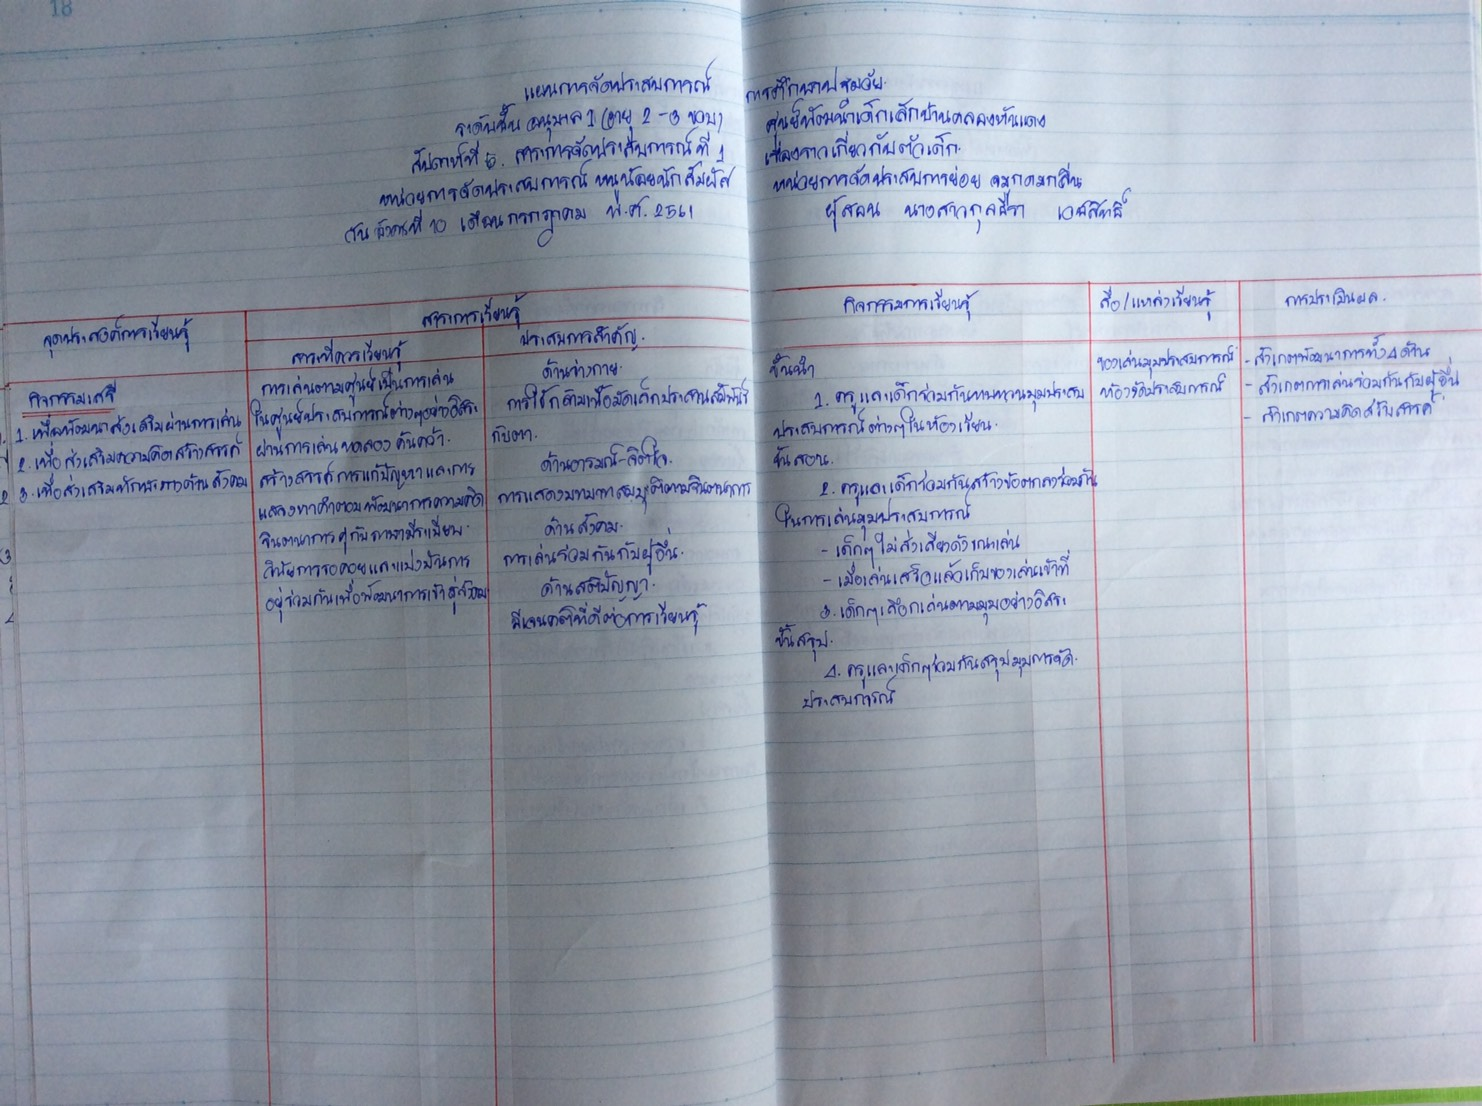 18
แผนการจัดประสบการณ์ การศึกษาปฐมวัย
ระดับชั้น อนุบาล 1 (อายุ 2 - 3 ขวบ) ศูนย์พัฒนาเด็กเล็กบ้านคลองหันแดง
สัปดาห์ที่ สาระการจัดประสบการณ์ ที่ 1 เรื่องราวเกี่ยวกับตัวเด็ก
หน่วยการจัดประสบการณ์ หนูน้อยนักสัมผัส หน่วยการจัดประสบการย่อย จมูกดมกลิ่น
วัน อังคารที่ 10 เดือน กรกฎาคม พ.ศ. 2561 ผู้สอน นางสาวกุลธีรา
จุดประสงค์การเรียนรู้
สาระการเรียนรู้
สาระที่ควรเรียนรู้
ประสบการสำคัญ.
กิจกรรมการเรียนรู้
สื่อ/แหล่งเรียนรู้
การประเมินผล.
กิจกรรมเสรี
1. เพื่อพัฒนาส่งเสริมผ่านการเล่น
2. เพื่อส่งเสริมความคิดสร้างสรรค์
3. เพื่อส่งเสริมทักษะทางด้านสังคม
การเล่นตามศูนย์เป็นการเล่น
ในศูนย์ประสบการณ์ต่างๆอย่างอิสระ
ผ่านการเล่น ทดลอง ค้นคว้า.
สร้างสรรค์การแก้ปัญหาและการ
แสดงหาคำตอบพัฒนาการความคิด
จินตนาการ คู่กับการมีระเบียบ.
วินัยการรอคอยและแบ่งปันการ
อยู่ร่วมกันเพื่อพัฒนาการเข้าสู่สังคม
ด้านร่างกาย.
การใช้กล้ามเนื้อมัดเล็กประสานสัมพันธ์
กับตา.
ด้านอารมณ์-จิตใจ.
การแสดงบทบาทสมมุติตามจินตนาการ
ด้านสังคม.
การเล่นร่วมกันกับผู้อื่น.
ด้านสติปัญญา.
มีเจนคติที่ดีต่อการเรียนรู้
ขั้นนำ
1. ครูและเด็กร่วมกันทบทวนมุมประสบ
ประสบการณ์ต่างๆในห้องเรียน.
ขั้นสอน.
2. ครูและเด็กร่วมกันสร้างข้อตกลงร่วมกัน
ในการเล่นมุมประสบการณ์
- เด็กๆไม่ส่งเสียงดังขณะเล่น
- เมื่อเล่นเสร็จแล้วเก็บของเล่นเข้าที่
3. เด็กๆเลือกเล่นตามมุมอย่างอิสระ
ขั้นสรุป.
4. ครูและเด็กๆร่วมกันสรุปมุมการจัด
ประสบการณ์
ของเล่นมุมประสบการณ์
ห้องจัดประสบการณ์
- สังเกตพัฒนาการทั้ง 4 ด้าน
- สังเกตการเล่นร่วมกันกับผู้อื่น
- สังเกตความคิดสร้างสรรค์